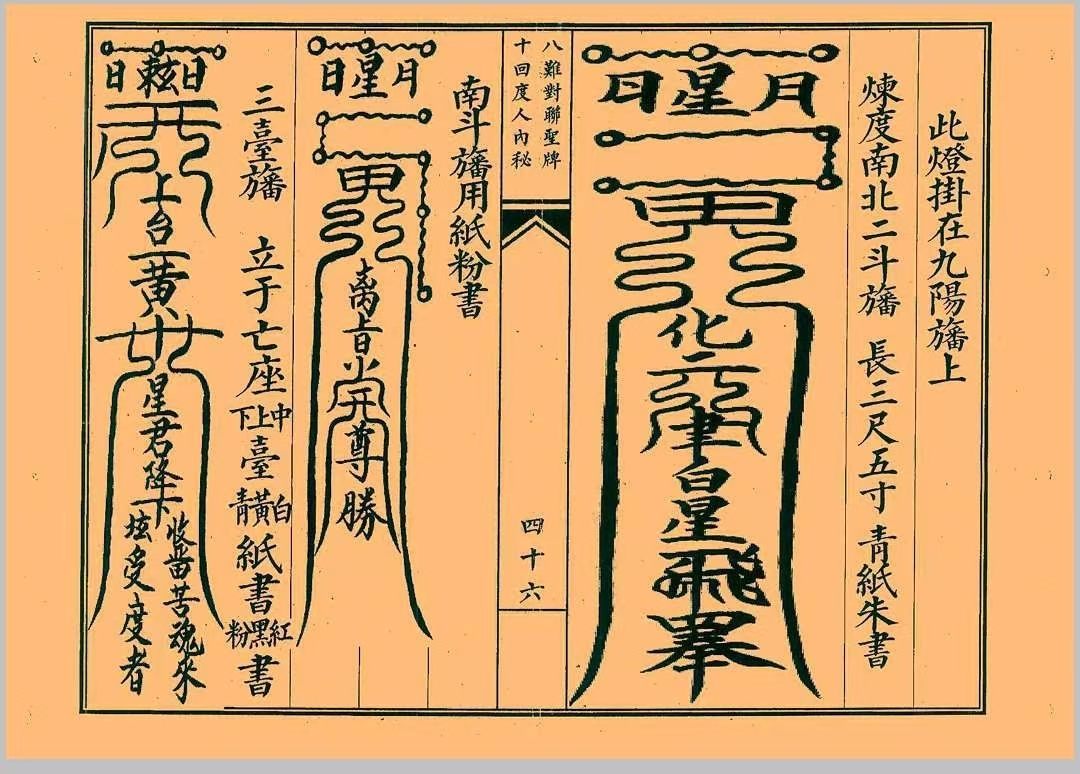 此燈掛在九陽旛上
煉度南北二斗旛 長三尺五寸 青紙朱書
月星日
化
白星飛
八難對聯聖牌
十回度人內秘
四十六
南斗旛用紙粉書
月星日
尊勝
三臺旛 立于亡座中上下臺白黃青紙書紅黑粉書
日 日
上台 黃 星君降下
收 苦魂來
受度者